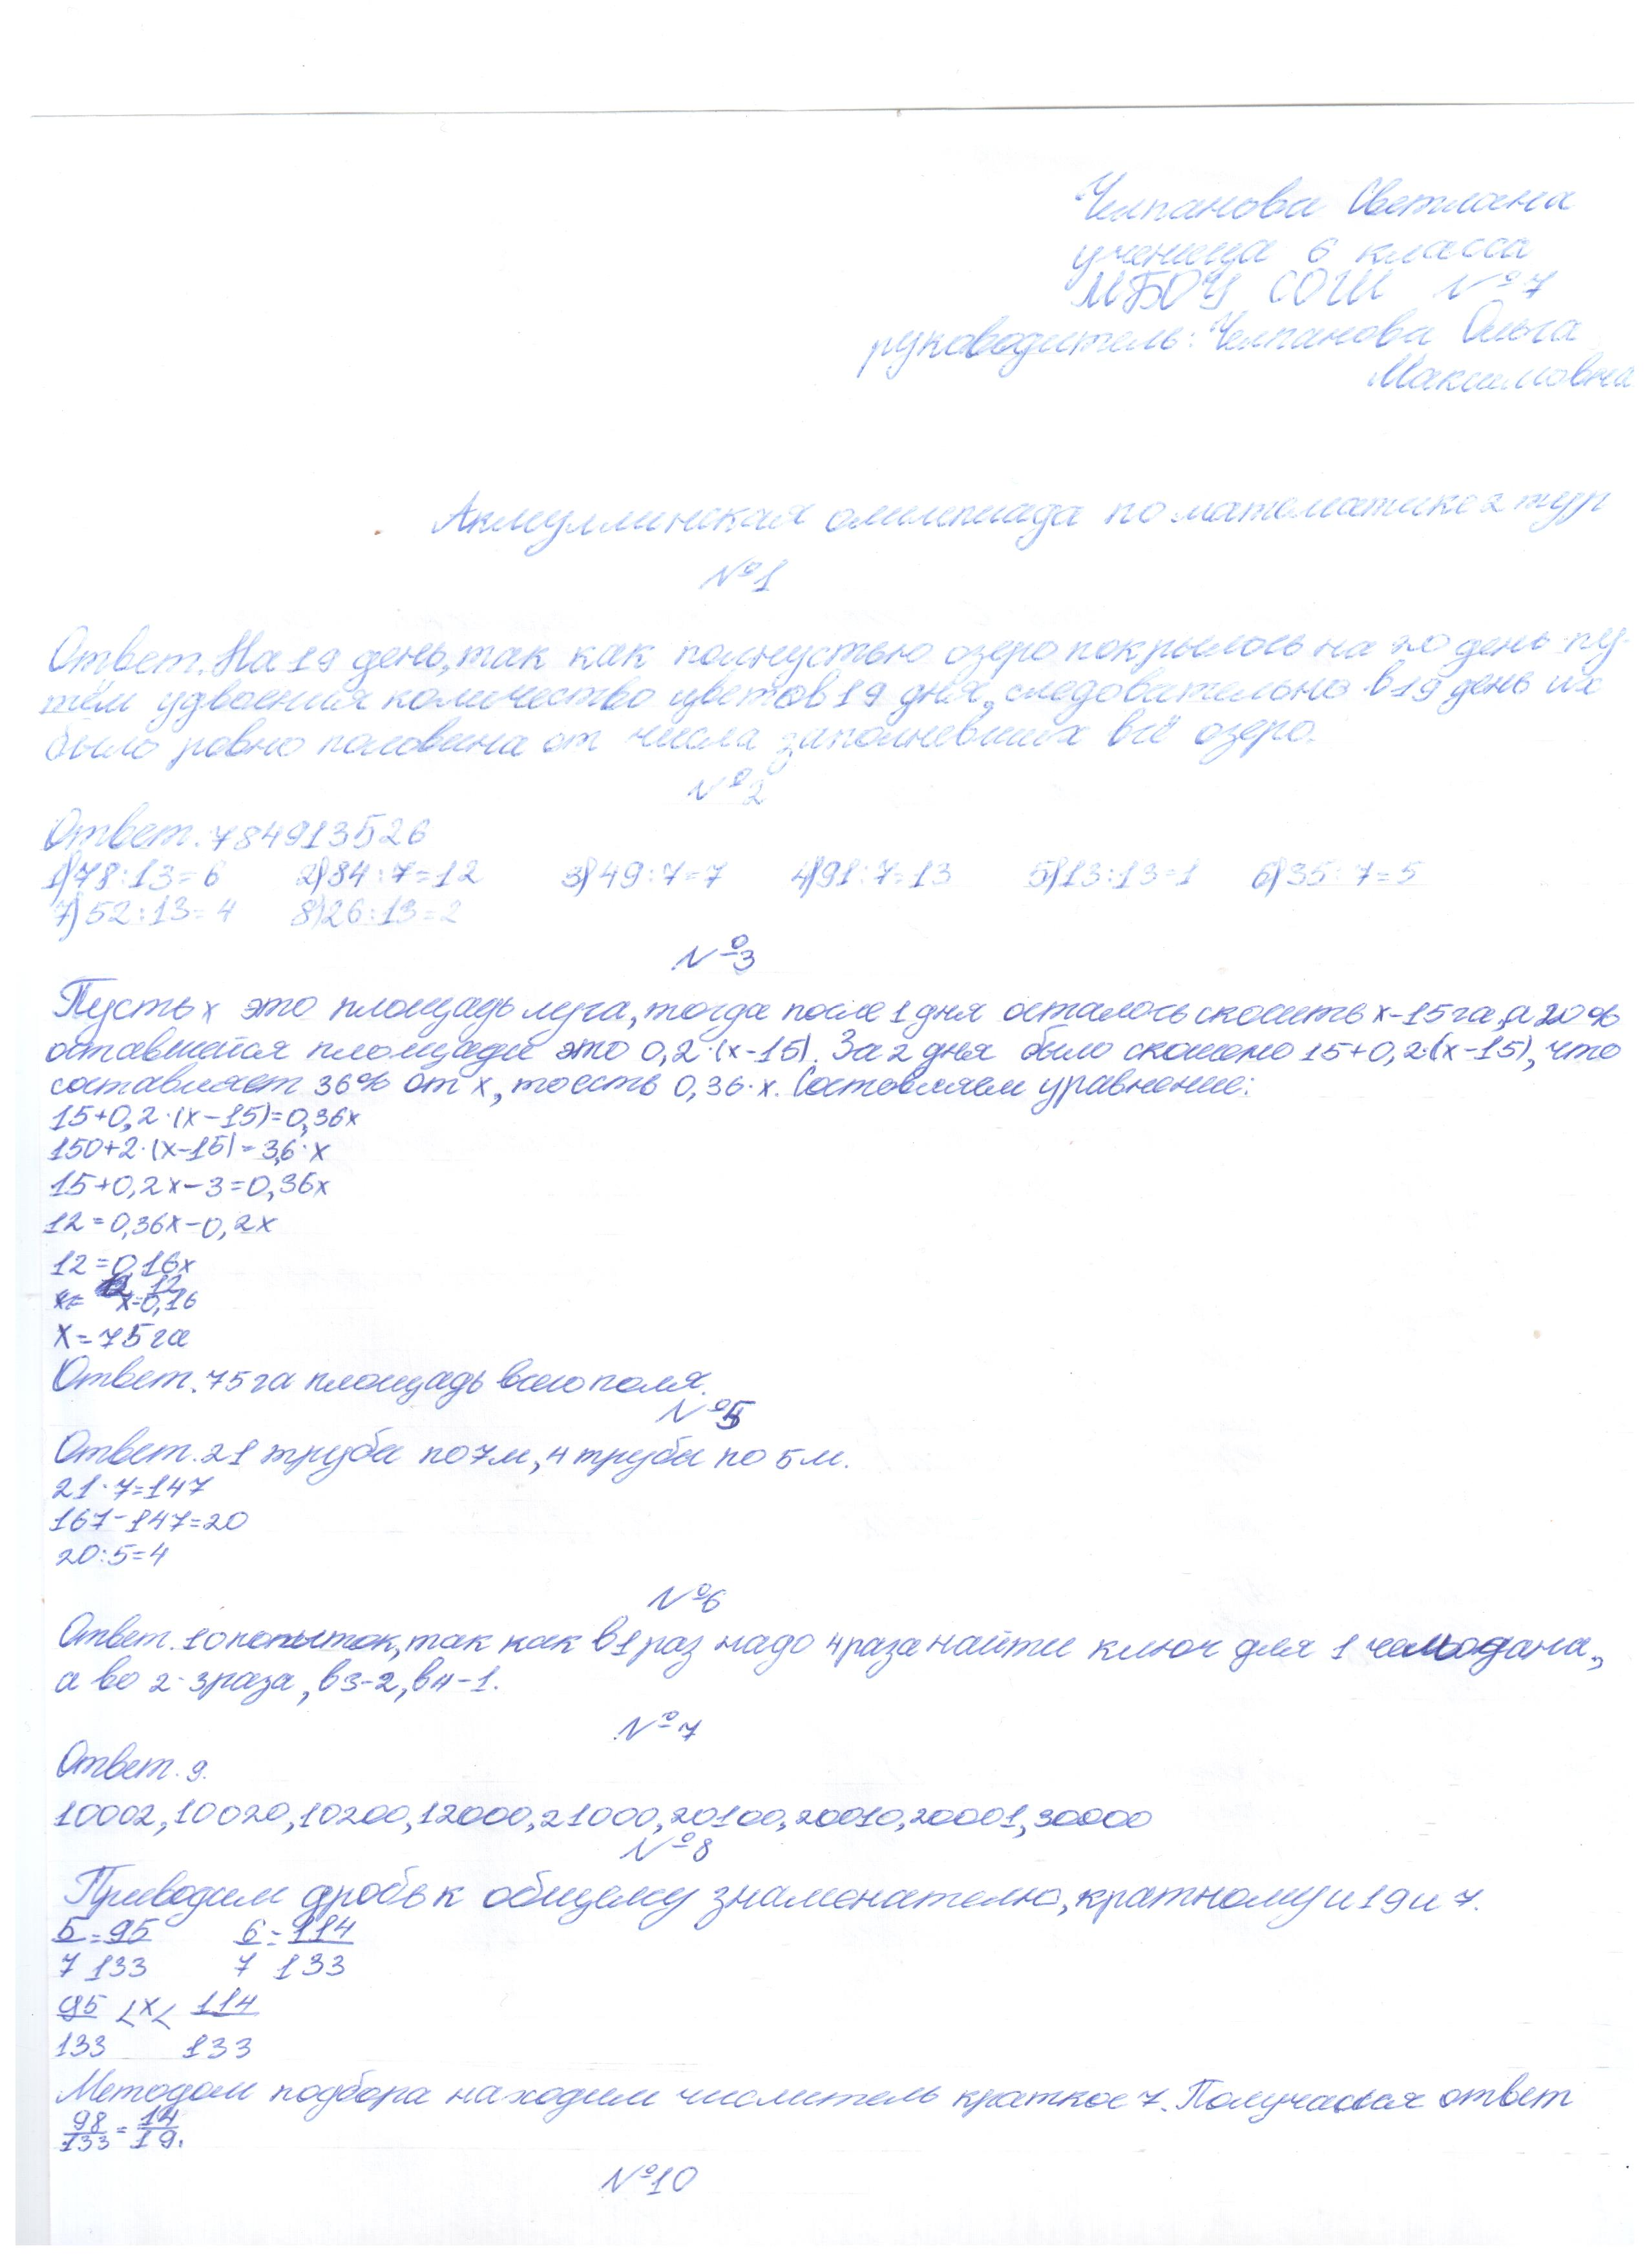 Челпанова Светлана
ученица 6 класса
МБОУ СОШ №7
руководитель: Челпанова Ольга
Максимовна
Акмуллинская олимпиада по математике 2 тур
№1
Ответ. На 19 день, так как полнустью озеро покрылось на 20 день пу-
тём удвоения количество цветов 19 дня, следовательно в 19 день их
было ровно половина от числа заполневших всё озеро.
№2
Ответ. 784913526
1)78:13=6 2)84:7=12 3)49:7=7 4)91:7=13 5)13:13=1 6)35:7=5
7)52:13=4 8)26:13=2
№3
Пусть x это площадь луга, тогда после 1 дня осталось скосить x-15га, а 20%
оставшейся площади это 0,2·(x-15). За 2 дня было скошено 15+0,2·(x-15), что
составляет 36% от x, тоесть 0,36·x. Составляем уравнение:
15+0,2·(x-15)=0,36x
150+2·(x-15)=3,6·x
15+0,2x-3=0,36x
12=0,36x-0,2x
12=0,16x
x=12/0,16
x=75га
Ответ. 75га площадь всего поля.
№5
Ответ. 21 трубы по 7м, 4 трубы по 5м.
21·7=147
167-147=20
20:5=4
№6
Ответ. 10 попыток, так как в 1 раз надо 4 раза найти ключ для 1 чемодана,
а во 2-3раза, в 3-2, в 4-1.
№7
Ответ. 9.
10002, 10020, 10200, 12000, 21000, 20100, 20010, 20001, 30000
№8
Приводим дробь к общему знаменателю, кратному и 19 и 7.
5/7=95/133 6/7=114/133
95/133<x<114/133
Методом подбора находим числитель краткое 7. Получаеся ответ
98/133=14/19.
№10